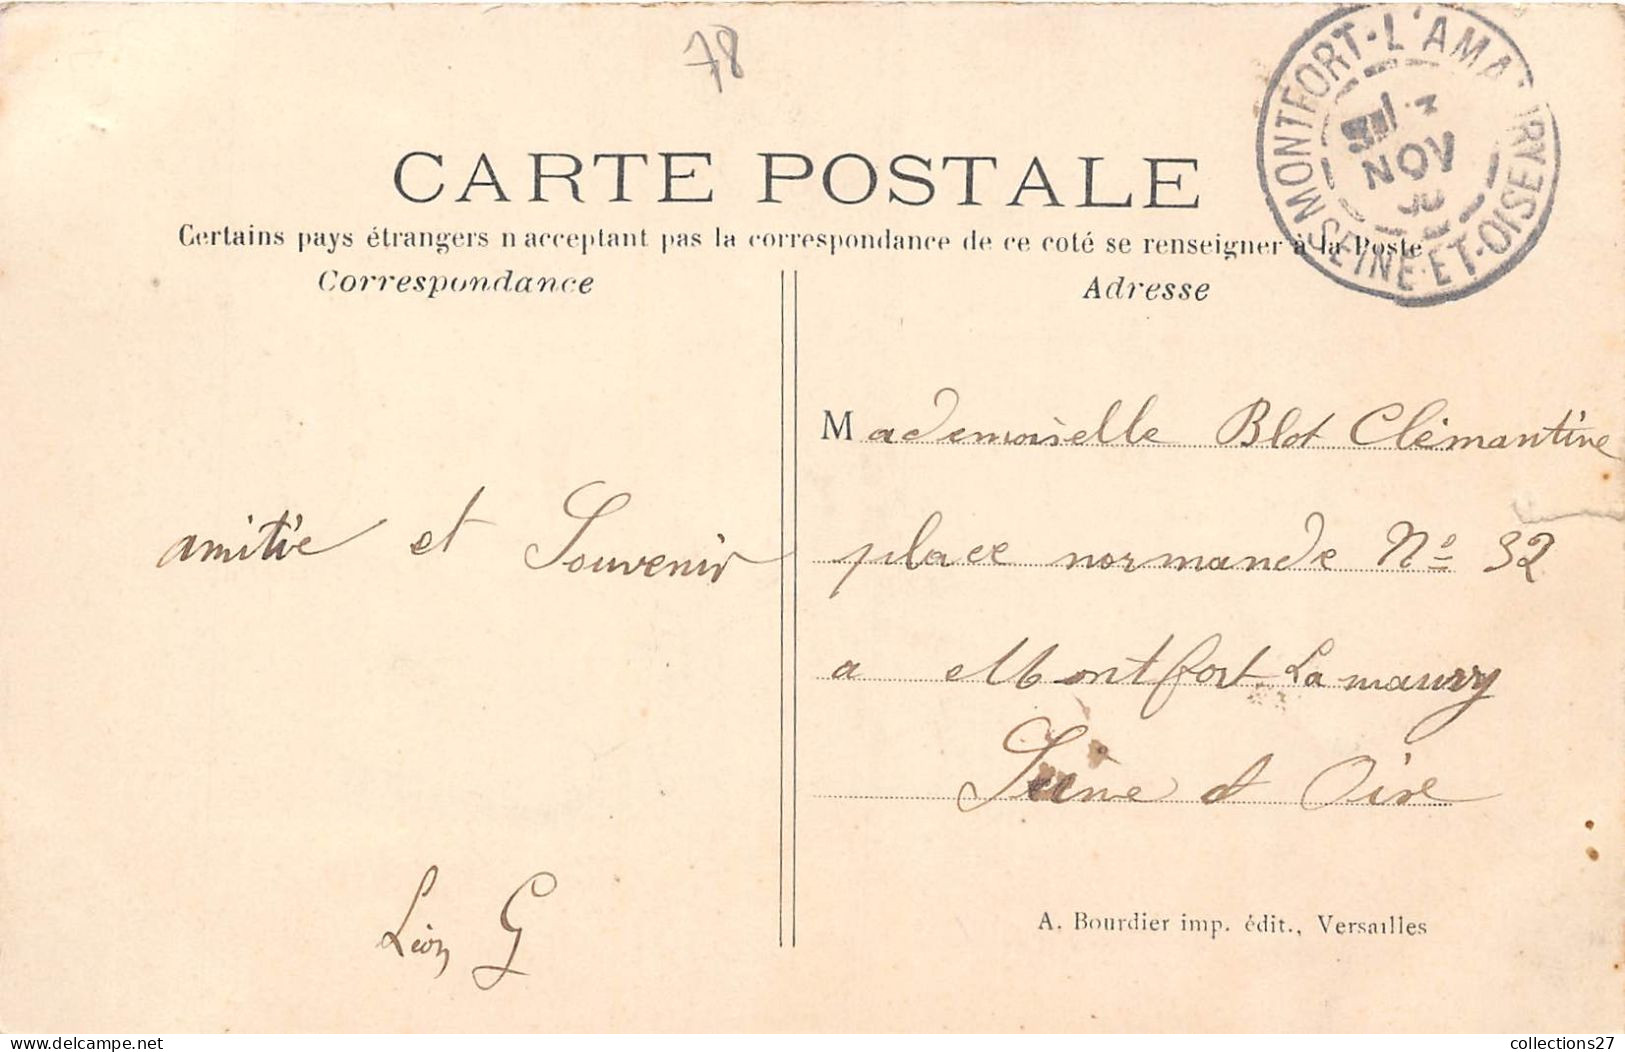 78
MONTFORT-L'AMAURY
3
NOV
SEINE-ET-OISE
CARTE POSTALE
Certains pays étrangers n acceptant pas la correspondance de ce coté se renseigner à la Poste
Correspondance
Adresse
Mademoiselle Blot Clémantine
amitie et Souvenir
place normande Nº 32
a Montfort Lamaury
Seine et Oise
Léon G
A. Bourdier imp. édit., Versailles
delcampe.net
collections27